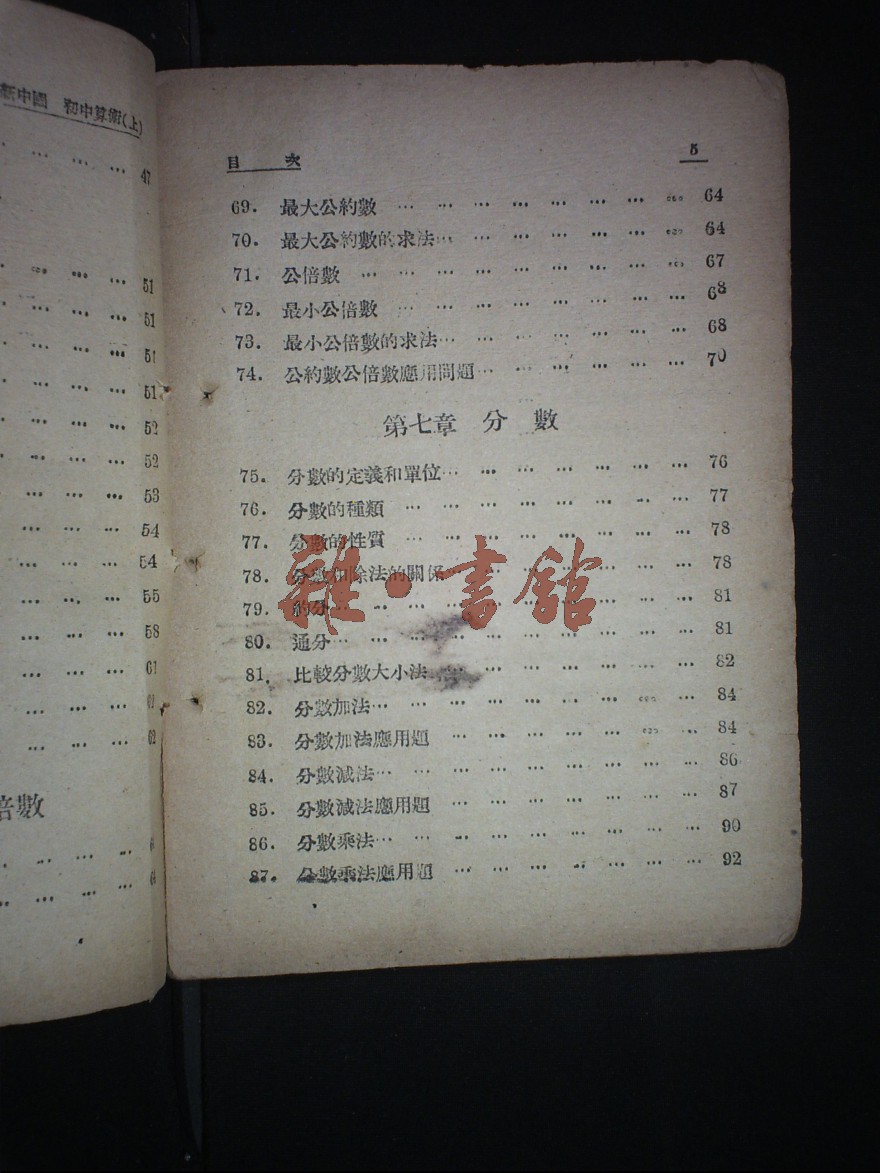 新中國 初中算術(上)
… … … 47
… … … 51
… … … 51
… … … 51
… … … 51
… … … 52
… … … 52
… … … 53
… … … 54
… … … 54
… … … 55
… … … 58
… … … 61
… … … 62
倍數
目 次 5
69. 最大公約數 … … … … … … … … 64
70. 最大公約數的求法… … … … … … … 64
71. 公倍數 … … … … … … … … … 67
72. 最小公倍數 … … … … … … … … 68
73. 最小公倍數的求法… … … … … … … 68
74. 公約數公倍數應用問題… … … … … … 70
第七章 分 數
75. 分數的定義和單位… … … … … … … 76
76. 分數的種類 … … … … … … … … 77
77. 分數的性質 … … … … … … … … 78
78. 分數和除法的關係 … … … … … … 78
79. 約分… … … … … … … … … … 81
80. 通分… … … … … … … … … … 81
81. 比較分數大小法… … … … … … … … 82
82. 分數加法… … … … … … … … … 84
83. 分數加法應用題 … … … … … … … 84
84. 分數減法… … … … … … … … … 86
85. 分數減法應用題 … … … … … … … 87
86. 分數乘法… … … … … … … … … 90
87. 分數乘法應用題 … … … … … … … 92
雜·書館